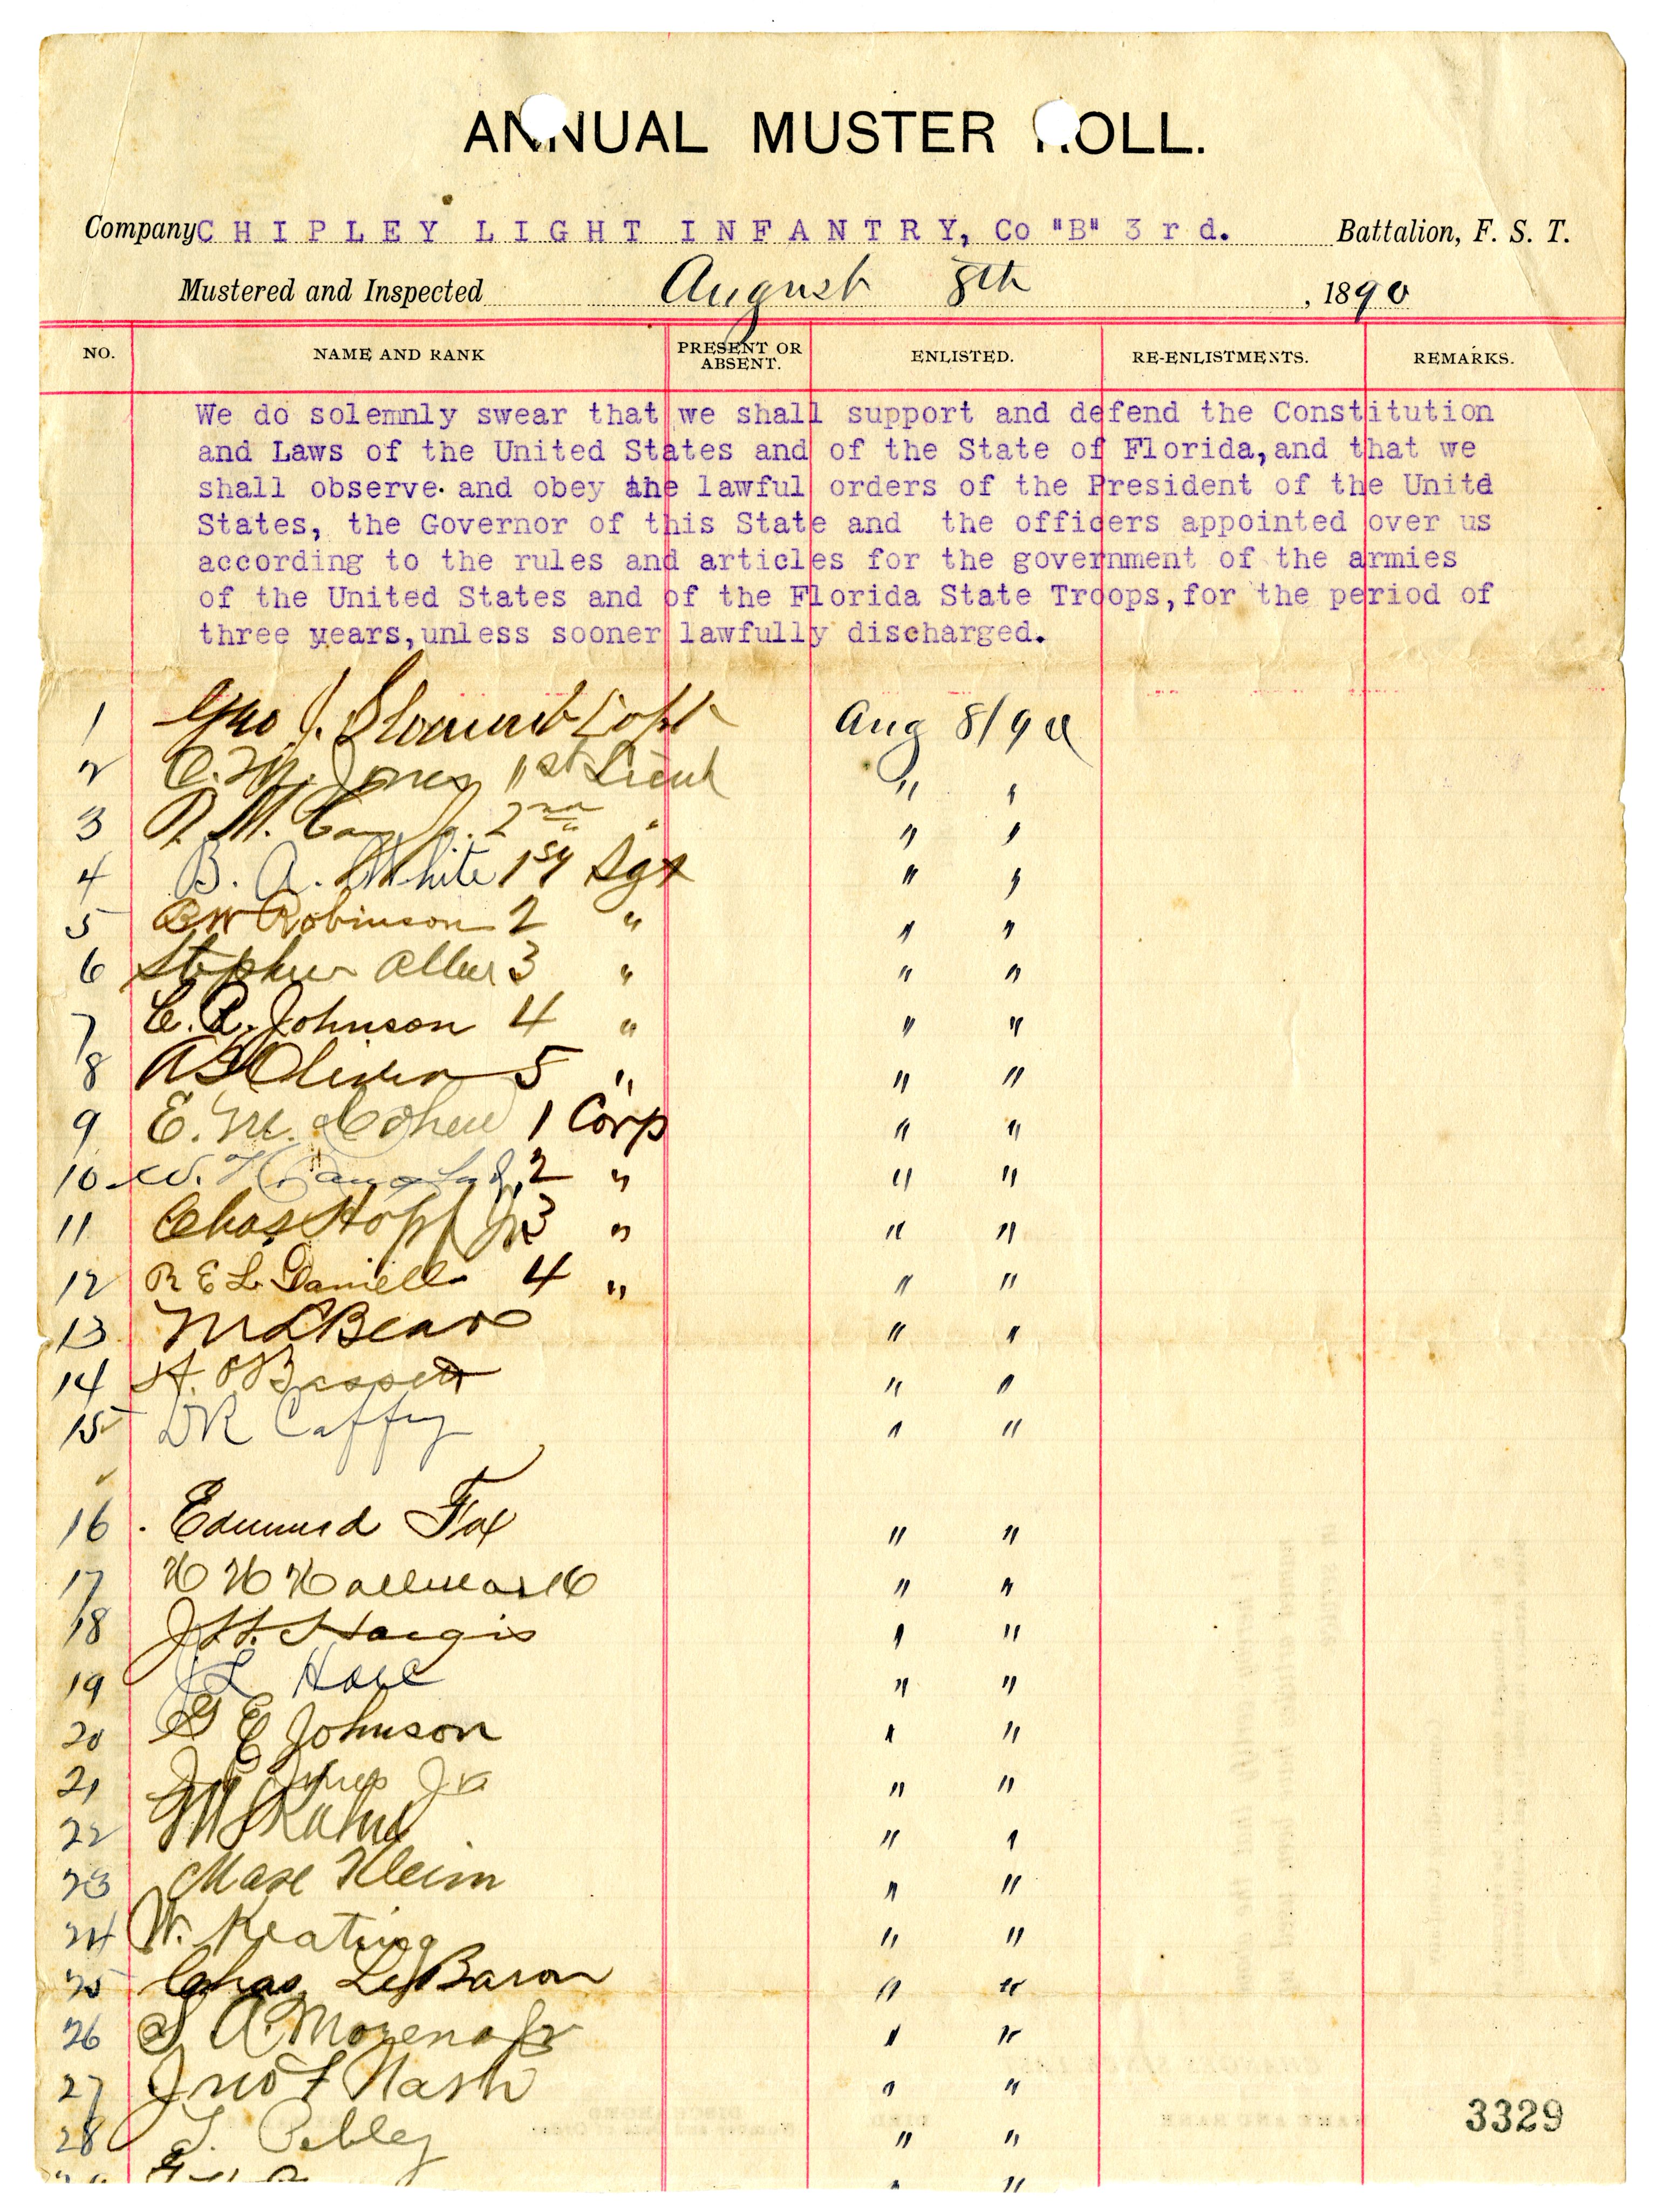 ANNUAL MUSTER ROLL.
Company CHIPLEY LIGHT INFANTRY, Co "B" 3rd. Battalion, F. S. T.
Mustered and Inspected August 8th, 1890
NO. NAME AND RANK PRESENT OR ABSENT. ENLISTED. RE-ENLISTMENTS. REMARKS.
We do solemnly swear that we shall support and defend the Constitution
and Laws of the United States and of the State of Florida,and that we
shall observe and obey the lawful orders of the President of the Unitd
States, the Governor of this State and the officers appointed over us
according to the rules and articles for the government of the armies
of the United States and of the Florida State Troops,for the period of
three years,unless sooner lawfully discharged.
1 Geo J. Capt Aug 8/90
2 C. M. Jones 1st Lieut " "
3 R. M. Jr. 2nd " " "
4 B. A. White 1st Sgt " "
5 Robinson 2 " " "
6 Stephen Allen 3 " " "
7 C. R. Johnson 4 " " "
8 Oliver 5 " " "
9 E. M. Cohen 1 Corp " "
10 W. 2 " " "
11 Chas Hopf Jr 3 " " "
12 R E L Daniell 4 " " "
13 M L Bear " "
14 H. " "
15 D R Caffey " "
16 Edmund Fox " "
17 H H Hallmark " "
18 J H. Hargis " "
19 J L Hall " "
20 G E Johnson " "
21 Jr " "
22 M Kahn " "
23 Max Klein " "
24 W. Keating " "
25 Chas. Le Baron " "
26 S A. Moreno Jr " "
27 Jno F Nash " "
28 Pebley " "
" "
3329